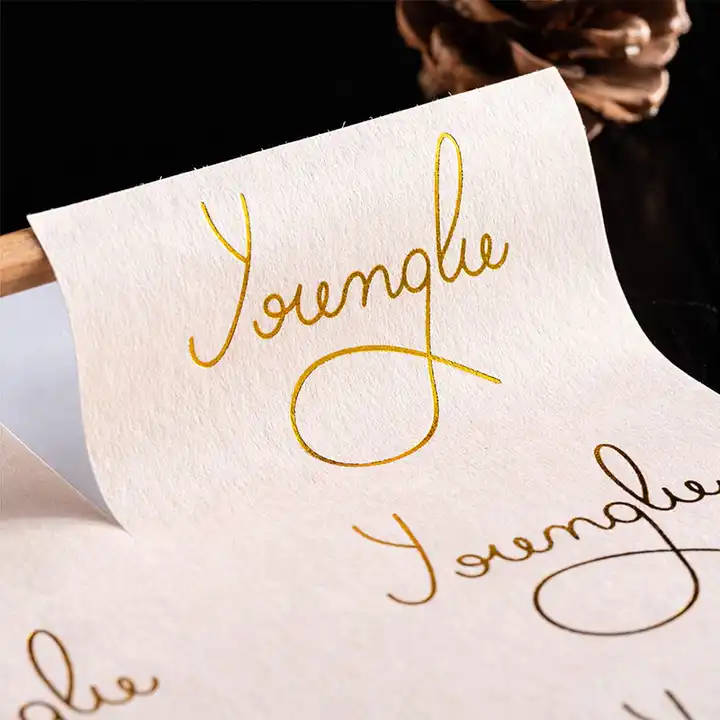 Younglue
Younglue
glue
Y